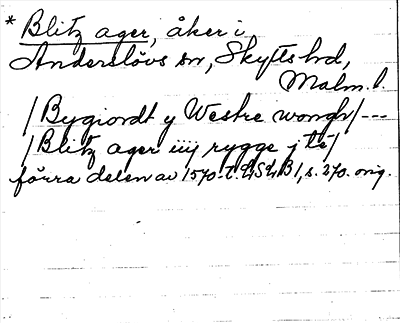 * Blitz ager, åker i
Anderslövs sn, Skytts hd,
Malm. l.
/Bygiordt y Westre wongh/---
/Blitz ager iiij rygge j te/
förra delen av 1570-t. LSLB1, s. 270. orig.